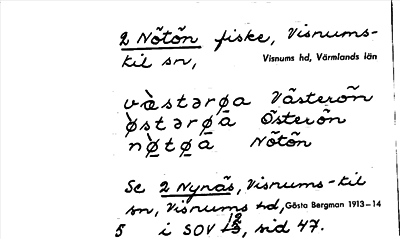 2 Nötön fiske, Visnums-
kil sn, Visnums hd, Värmlands län
Västerön
Österön
Nötön
Se 2 Nynäs, Visnums-kil
sn, Visnums hd, Gösta Bergman 1913–14
5 i SOV sid 47.